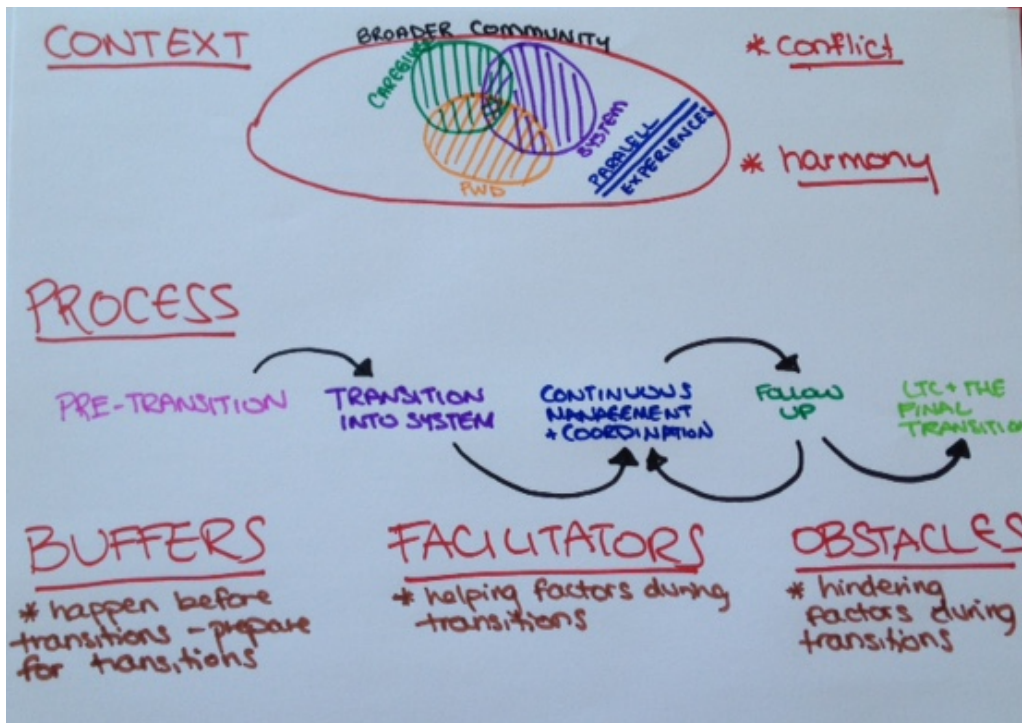 CONTEXT
BROADER COMMUNITY
CAREGIVER
SYSTEM
PWD
PARALELL
EXPERIENCES
* conflict
* harmony
PROCESS
PRE-TRANSITION
TRANSITION
INTO SYSTEM
CONTINUOUS
MANAGEMENT
+ COORDINATION
FOLLOW
UP
LTC + THE
FINAL
TRANSITION
BUFFERS
* happen before
transitions - prepare
for transitions
FACILITATORS
* helping factors during
transitions
OBSTACLES
* hindering
factors during
transitions